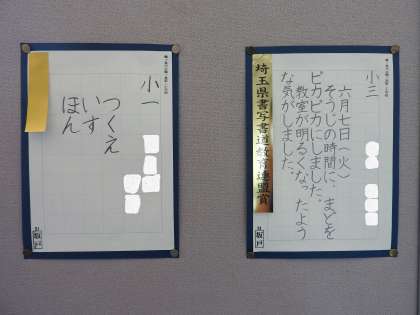 小三
六月七日（火）
そうじの時間に、まどを
ピカピカにしました。
教室が明るくなったよう
な気がしました。
埼玉県書写書道教育連盟賞
坂戸
小一
つくえ
いす
ほん
坂戸